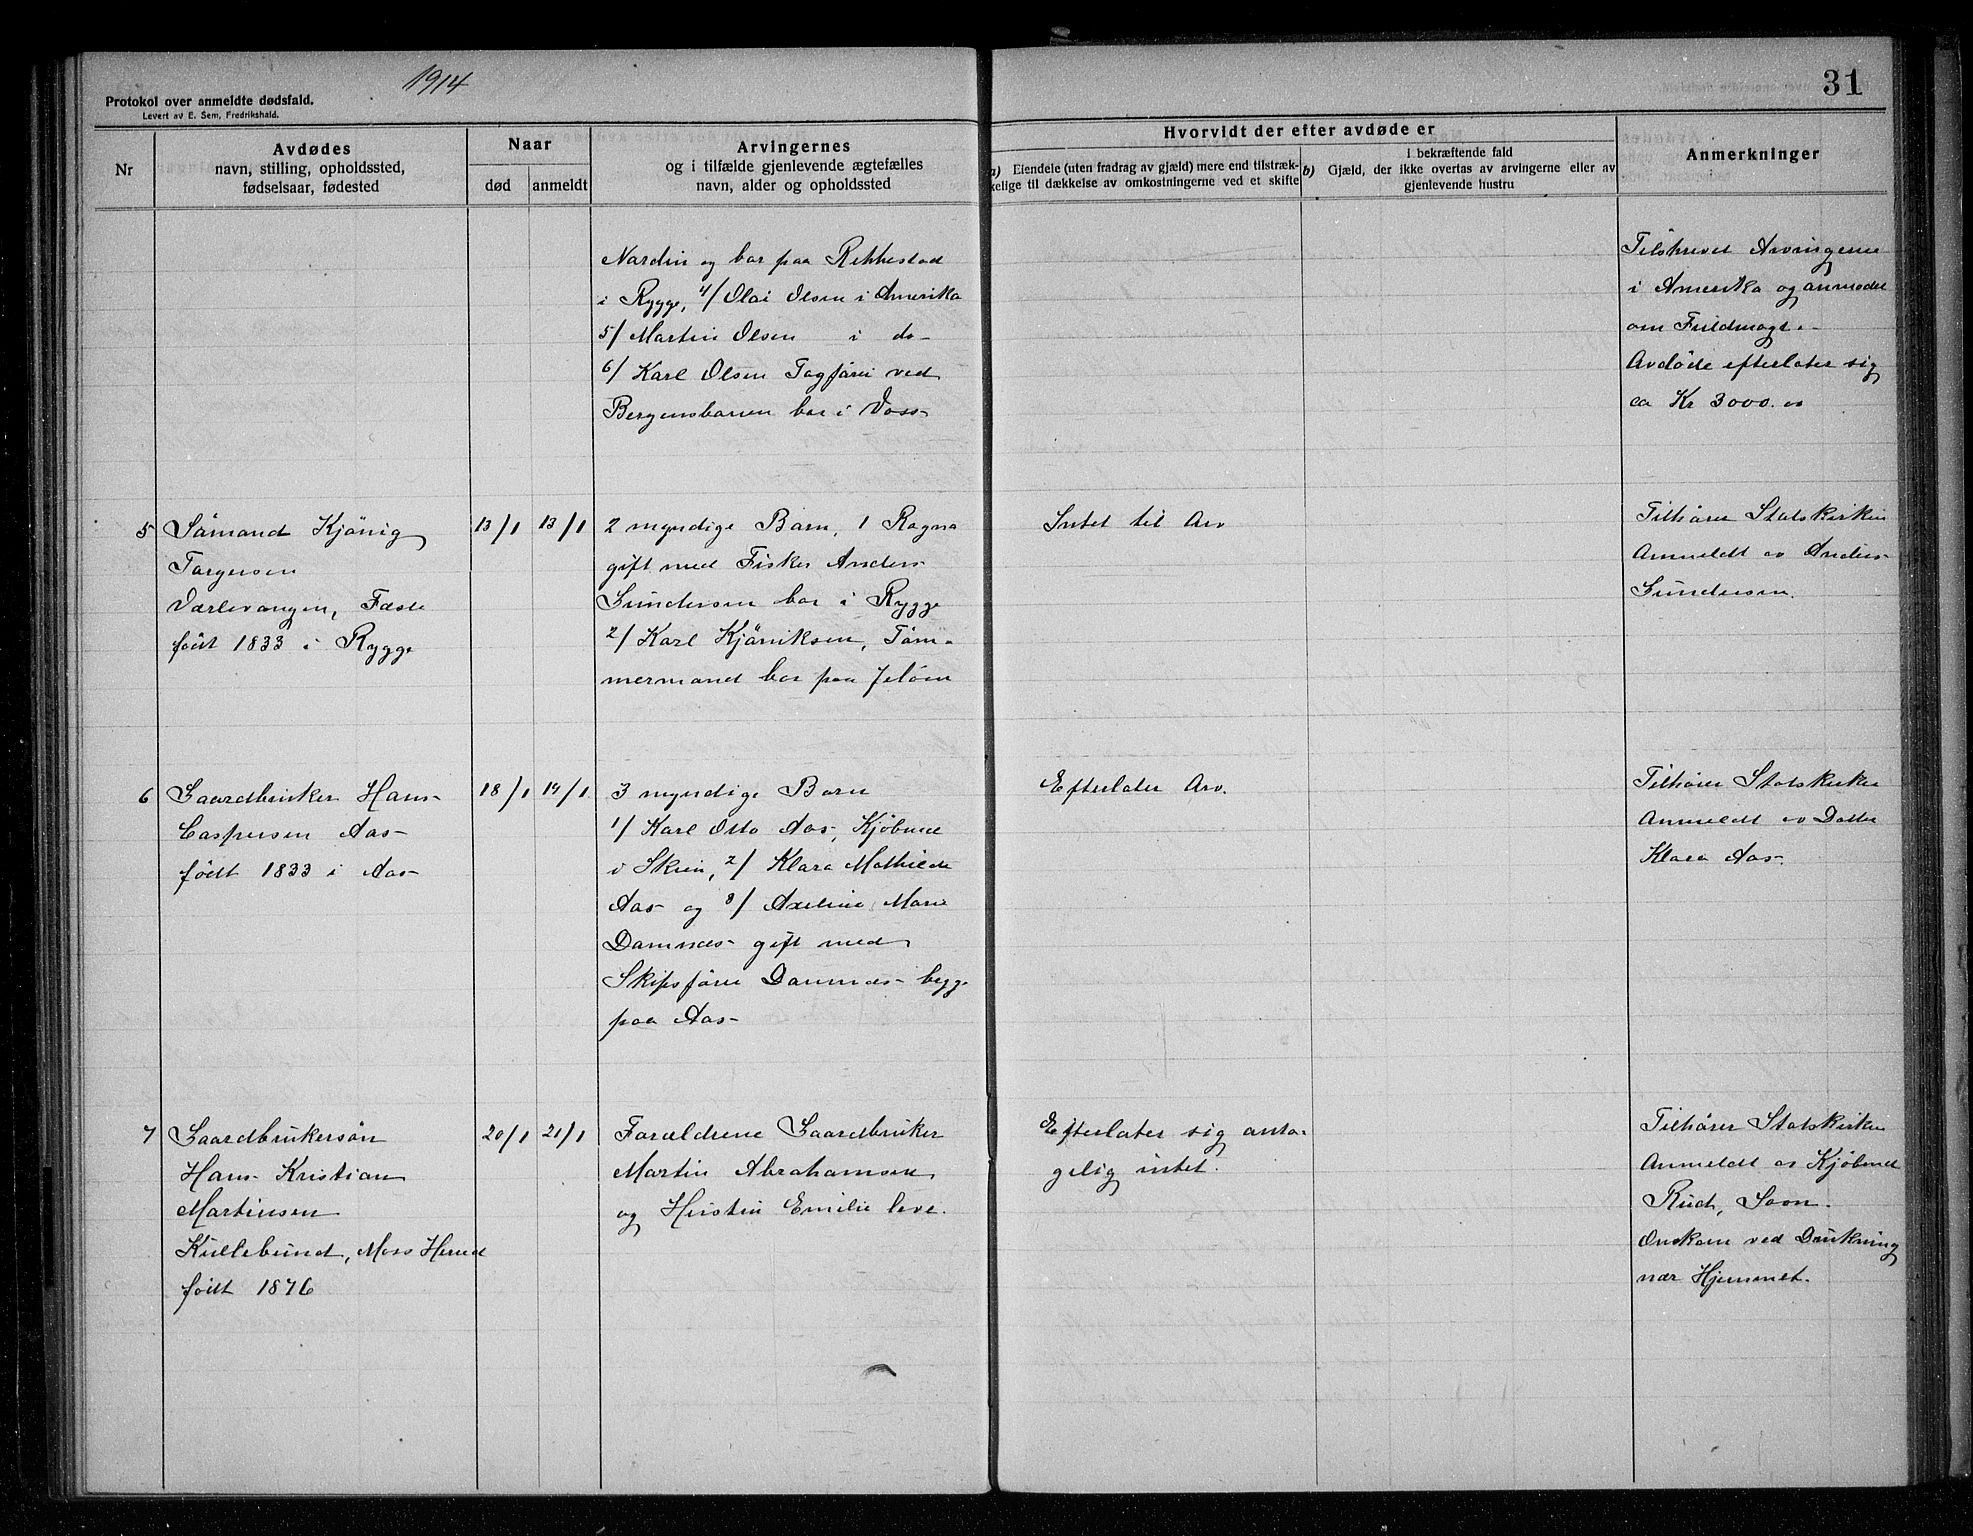 1914
Protokol over anmeldte dødsfald.
Levert av E. Sem, Fredrikshald.
31
Nr
Avdødes
navn, stilling, opholdssted,
fødselsaar, fødested
Naar
død
anmeldt
Arvingernes
og i tilfælde gjenlevende ægtefælles
navn, alder og opholdssted
Hvorvidt der efter avdøde er
a) Eiendele (uten fradrag av gjæld) mere end tilstræk-
kelige til dækkelse av omkostningerne ved et skifte
b) I bekræftende fald
Gjæld, der ikke overtas av arvingerne eller av
gjenlevende hustru
Anmerkninger
Nardin og bor paa Rekkestad
i Rygge, 4/ Olai Olsen i Amerika
5/ Martin Olsen i do-
6/ Karl Olsen Togfører ved
Bergensbanen bor i Voss-
Tilskrevet Arvingerne
i Amerika og anmodet
om Fuldmagt.-
Avdøde efterlater sig
ca Kr 3000.00
5
Sömand Kjönig
Torgersen
Værlevangen, Fæste
født 1833 i Rygge
13/1
13/1
2 myndige Barn, 1 Ragna
gift med Fisker Anders
Gundersen bor i Rygge
2/ Karl Kjöniksen, Töm-
mermand bor paa Jeløen
Intet til Arv
Tilhører Statskirken
Anmeldt av Anders
Gundersen.
6
Gaardbruker Hans
Caspersen Aas-
født 1833 i Aas-
18/1
19/1
3 myndige Barn
1/ Karl Otto Aas, Kjøbmd
i Skien, 2/ Klara Mathilde
Aas- og 3/ Axeline Marie
Damnæs- gift med
Skipsfører Damnæs- begge
paa Aas-
Efterlater Arv.
Tilhører Statskirken
Anmeldt av Datter
Klara Aas-
7
Gaardbrukersøn
Hans Kristian
Martinsen
Kullebund, Moss Herred
født 1876
20/1
21/1
Forældrene Gaardbruker
Martin Abrahamsen
og Hustru Emilie leve.
Efterlater sig anta-
gelig intet.
Tilhører Statskirken
Anmeldt av Kjøbmd
Rud, Soon.
Omkom ved Drukning
nær Hjemmet.